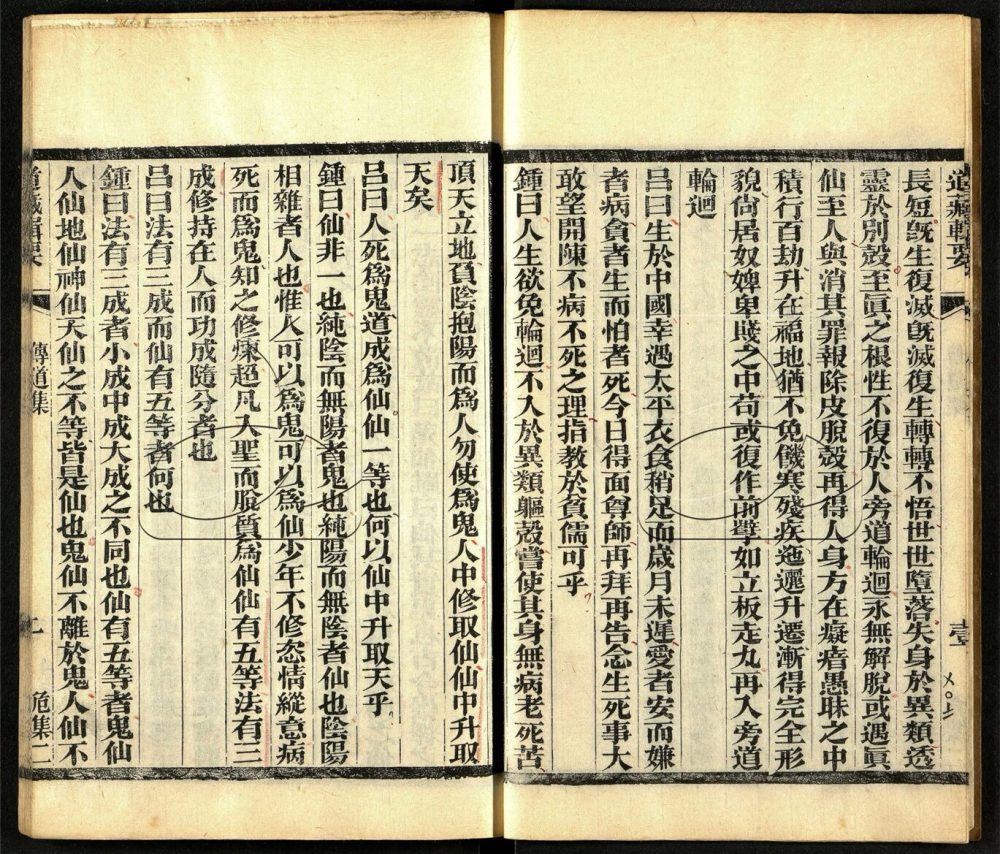 道藏輯要
長短旣生復滅旣滅復生轉轉不悟世世墮落失身於異類透
靈於別殼至眞之根性不復於人旁道輪迴永無解脫或遇眞
仙至人與消其罪報除皮脫殼再得人身方在癡瘖愚昧之中
積行百劫升在福地猶不免饑寒殘疾迤邐升遷漸得完全形
貌尙居奴婢卑賤之中苟或復作前孽如立板走丸再入旁道
輪迴
呂曰生於中國幸遇太平衣食稍足而歲月未遲愛者安而嫌
者病貪者生而怕者死今日得面尊師再拜再告念生死事大
敢望開陳不病不死之理指教於貧儒可乎
鍾曰人生欲免輪迴不入於異類軀殼嘗使其身無病老死苦
頂天立地負陰抱陽而爲人勿使爲鬼人中修取仙仙中升取
天矣
呂曰人死爲鬼道成爲仙仙一等也何以仙中升取天乎
鍾曰仙非一也純陰而無陽者鬼也純陽而無陰者仙也陰陽
相雜者人也惟人可以爲鬼可以爲仙少年不修恣情縱意病
死而爲鬼知之修煉超凡入聖而脫質爲仙仙有五等法有三
成修持在人而功成隨分者也
呂曰法有三成而仙有五等者何也
鍾曰法有三成者小成中成大成之不同也仙有五等者鬼仙
人仙地仙神仙天仙之不等皆是仙也鬼仙不離於鬼人仙不
傳道集
危集二